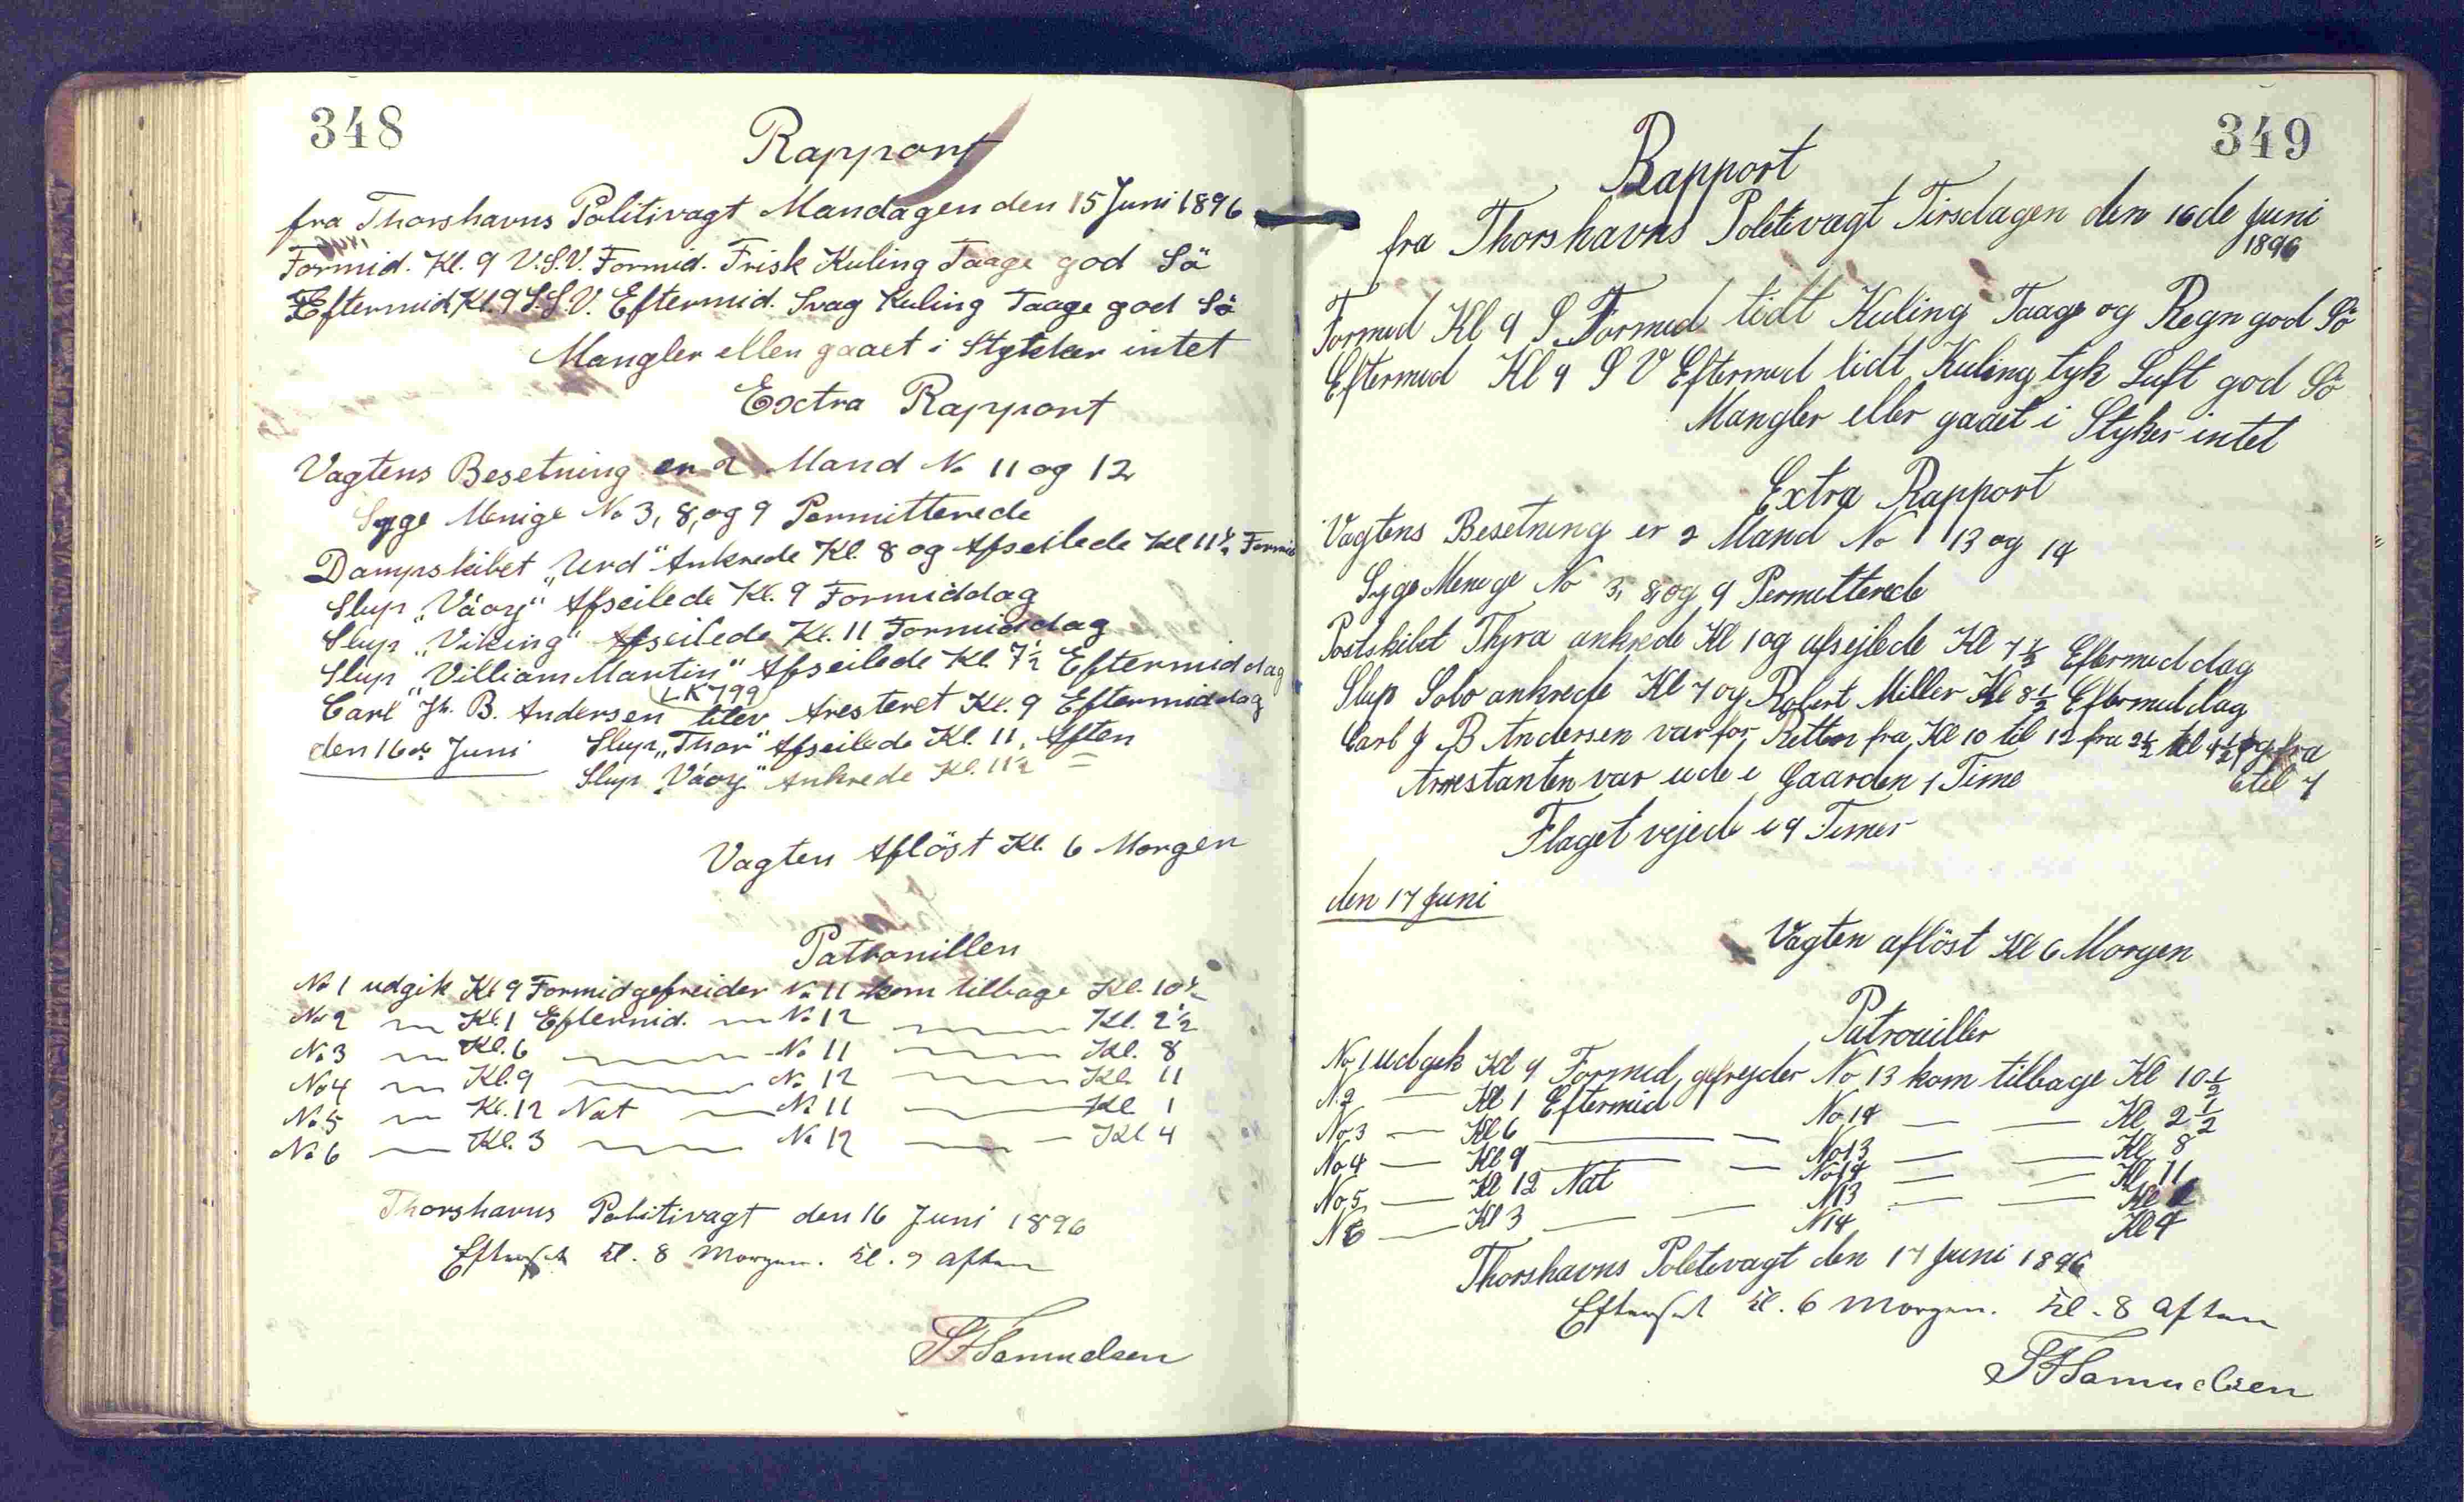 348
Rapport
fra Thorshavns Politivagt Mandagen den 15 Juni 1896
Formid. Kl. 9 V.S.V. Formid. Frisk Kuling Taage god Sö
Eftermid Kl. 9 S.S.V. Eftermid. Svag Kuling Taage god Sö
Mangler eller gaaet i Stykker intet
Extra Rapport
Vagtens Besetning er 2 Mand No 11 og 12
Syge Menige No 3, 8, og 9 Permitterede
Dampskibet „Urd" Ankrede Kl. 8 og Afseilede Kl 11½ Formid
Slup „Váorj" Afseilede Kl. 9 Formiddag
Slup „Viking" Afseilede Kl. 11 Formiddag
Slup „Villiam Martin" Afseilede Kl. 7½ Eftermiddag
LK 799
Carl Jh. B. Andersen blev Aresteret Kl. 9 Eftermiddag
den 16de Juni Slup „Thor" Afseilede Kl. 11, Aften
Slup „Váorj" Ankrede Kl. 11½ =
Vagten Aflöst Kl. 6 Morgen
Patrouillen
No 1 udgik Kl 9 Formid gefreider No 11 kom tilbage Kl. 10½
No 2 — Kl. 1 Eftermid. — No 12 — Kl. 2½
No 3 — Kl. 6 — No 11 — Kl. 8
No 4 — Kl. 9 — No 12 — Kl. 11
No 5 — Kl. 12 Nat — No 11 — Kl. 1
No 6 — Kl. 3 — No 12 — — Kl 4
Thorshavns Politivagt den 16 Juni 1896
Efterset Kl. 8 Morgen. Kl. 9 Aften
SFSamuelsen
349
Rapport
fra Thorshavns Politivagt Tirsdagen den 16de Juni
1896
Formid Kl 9 S Formid lidt Kuling Taage og Regn god Sö
Eftermid Kl 9 S V Eftermid lidt Kuling tyk Luft god Sö
Mangler eller gaaet i Styker intet
Extra Rapport
Vagtens Besetning er 2 Mand No 13 og 14
Syge Menige No 3, 8, og 9 Permitterede
Postskibet Thyra ankrede Kl 1 og afsejlede Kl 7½ Eftermiddag
Slup Solo ankrede Kl 7 og Robert Miller Kl 8½ Eftermiddag
Carl J B Andersen var for Retten fra Kl 10 til 12 fra 2½ til 4½ og fra
6 til 7
Arrestanten var ude i Gaarden 1 Time
Flaget vejede i 9 Timer
den 17 Juni
Vagten aflöst Kl 6 Morgen
Patrouiller
No 1 udgik Kl 9 Formid, gefrejder No 13 kom tilbage Kl 10½
N. 2 — Kl 1 Eftermid No 14 — — Kl 2½
No 3 — Kl 6 — — No 13 — — Kl 8
No 4 — Kl 9 — — No 14 — — Kl 11
No 5 — Kl 12 Nat — N 13 — — Kl 1
N 6 — Kl 3 — — N 14 Kl 4
Thorshavns Politivagt den 17 Juni 1896
Efterset Kl. 6 Morgen. Kl. 8 Aften
SFSamuelsen